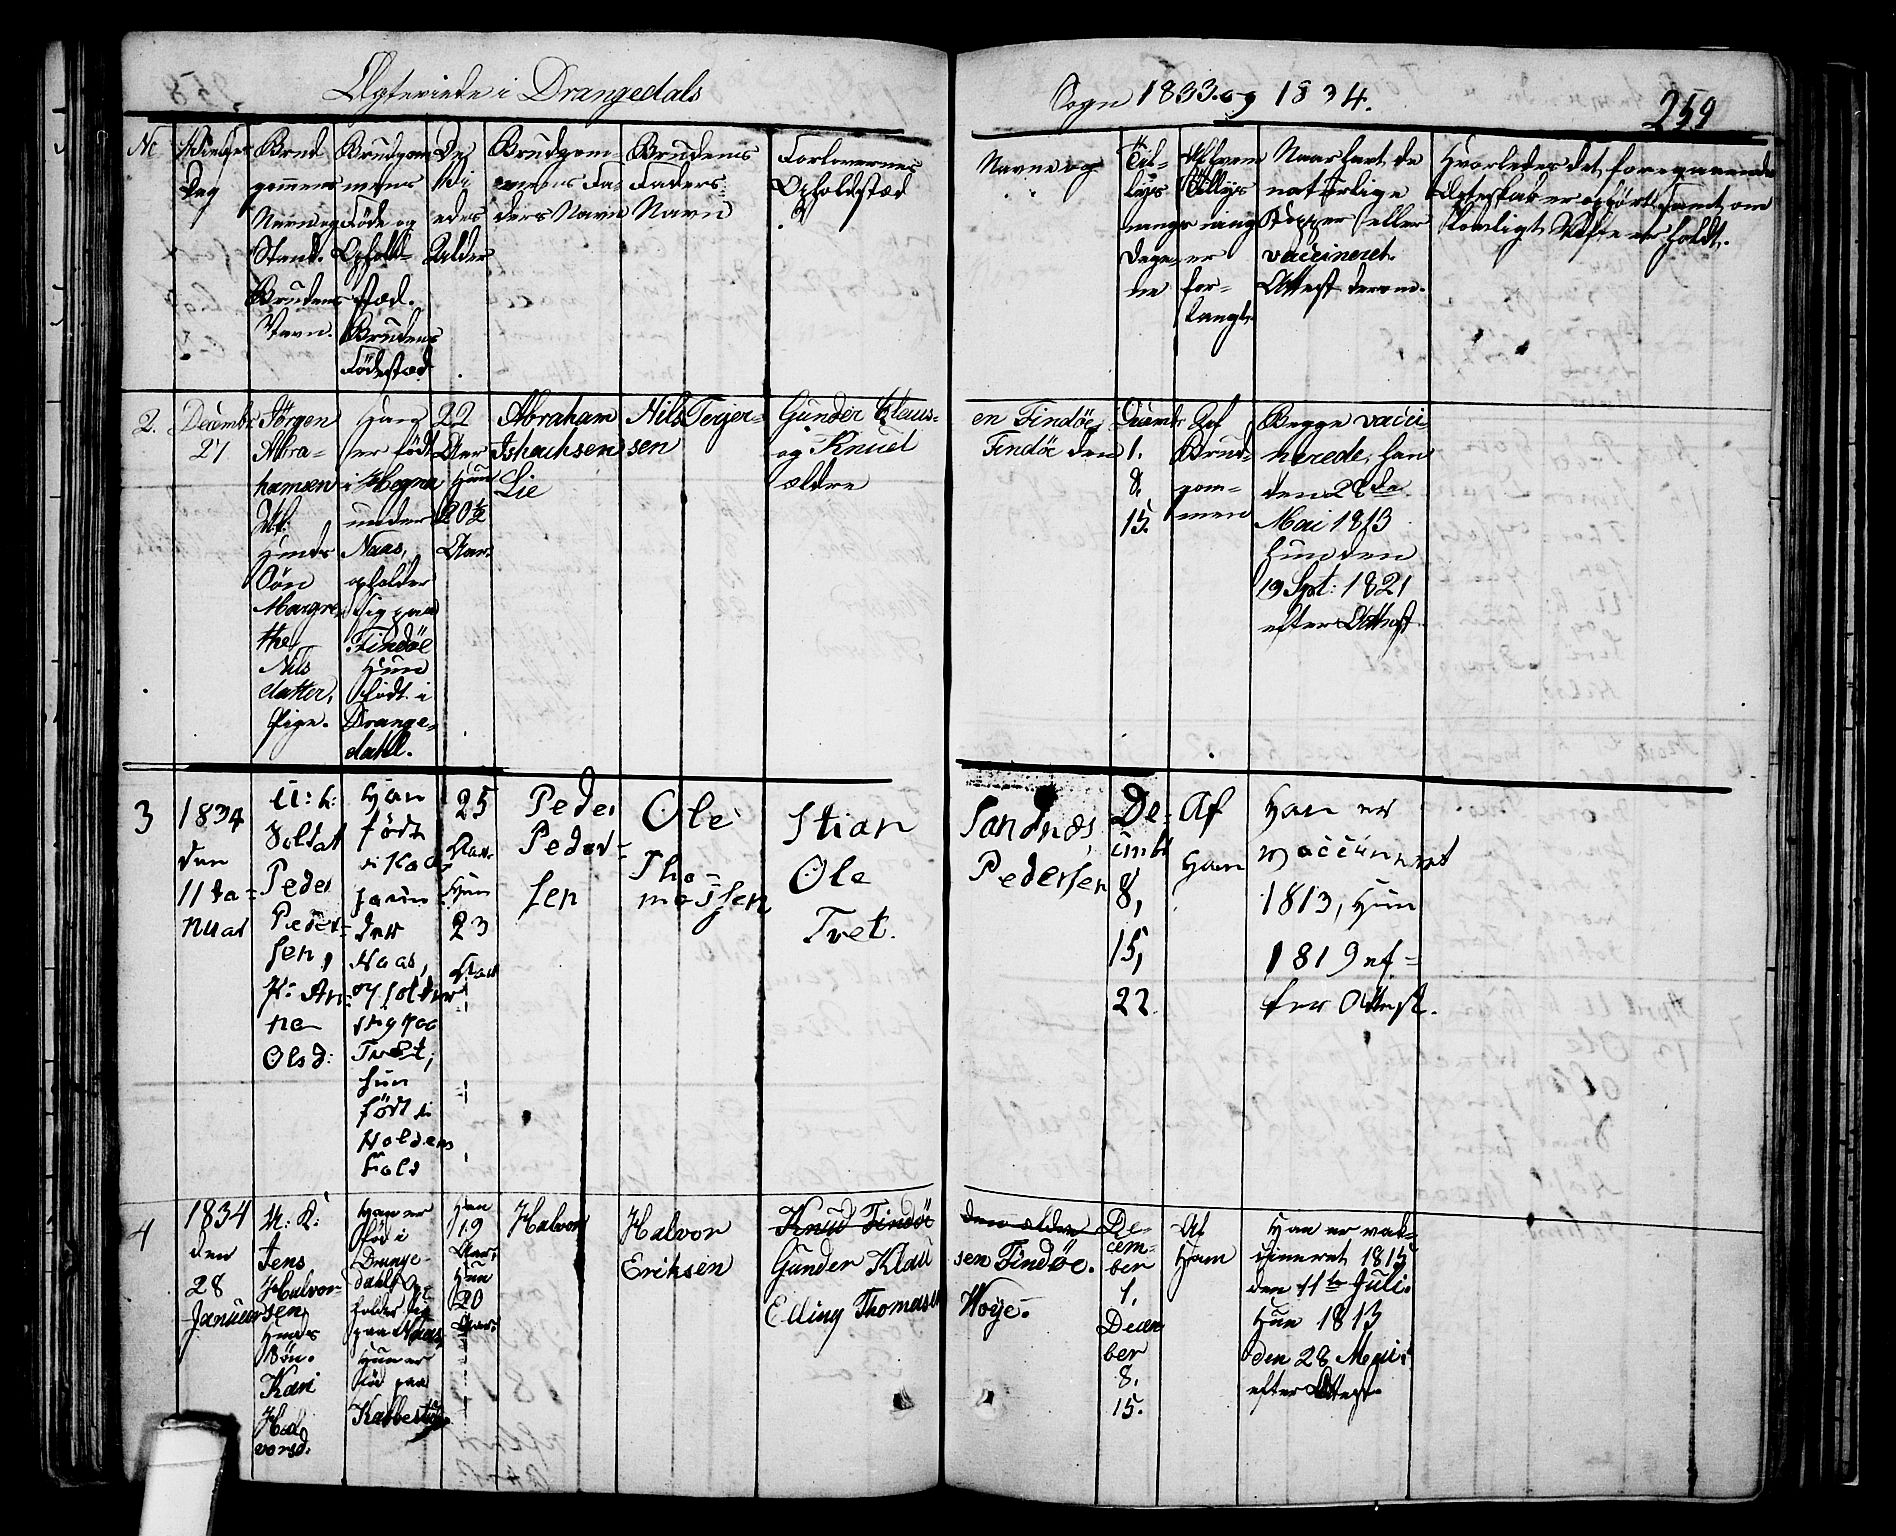 Ægteviede i Drangedals
Sogn 1833 og 1834.
259
No
Vielses
Dag
Brud
gommens
Navn og
Stand.
Brudens
Navn.
Brudgom
mens
Föde og
Opholds
stæd.
Brudens
Födestæd
De
Vi
edes
Alder
Brudgom-
mens Fa-
ders Navn
Brudens
Faders
Navn
Forlovernes
Opholdstæd
Navne og
Til-
lys
nings
Dage-
ne
Af hvem
Tillys
ning
er
for-
langt
Naar havt de
naturlige
Kopper eller
vaccineret.
Attest derom.
Hvorledes det foregaaende
Ægteskab er ophört, samt om
lovligt Skifte er holdt.
2.
Decembr
27
Jörgen
Abra-
hamsen
Hands
Sön
Margre-
the
Nils
datter,
Pige.
Han
er födt
i Hegna
under
Naas,
opholder
sig paa
Findöe
Hun
födt i
Drange-
dahl.
22
Aar
Hun
20½
Aar
Abraham
Ishachsen
Lie
Nils Terjer-
sen
Gunder Claus-
og Knud
ældre
en Findöe,
Findöe den
Decembr
1.
8.
15.
Af
Brud-
gom-
men
Begge vacci
nerede, han
den 28de
Mai 1813
hun den
19 Spt: 1821
efter Attest
3
1834
den
11 Ja-
nuar
U: k:
Soldat
Peder
Peder-
sen,
P: An-
ne
Olsd:
Han
födt
un
der
Naas,
opholder
sig paa
Tvet,
hun
födt i
Holdens
25
Aar
Hun
23
Aar
Peder
Peder-
sen
Ole
Tho-
massen
Stian
Ole
Tvet.
Sandnæs,
Pedersen
De-
cmbr
8,
15,
22
Af
Ham
Han er
vaccineret
1813, Hun
1819 ef-
ter Attest.
4
1834
den
28
Januar
U: K:
Jens
Halvor-
sen
Hands
Sön.
Kari
Hal
vorsd.
Han er
föd i
Drange-
dahl Op
holder sig
paa Naas
Hun er
föd paa
Han
19
Aar
Hun
20
Aar
Halvor
Halvor
Eriksen
Knud Findöe
Gunder Klau
Elling Thomasen
den ældre
sen Findöe.
Woje.
De-
cem-
ber
1,
Decem
ber
8.
15.
Af
Ham
Han er vak-
cineret 1815
den 11te Juli.
Hun 1813
den 28 Maii
efter Attest